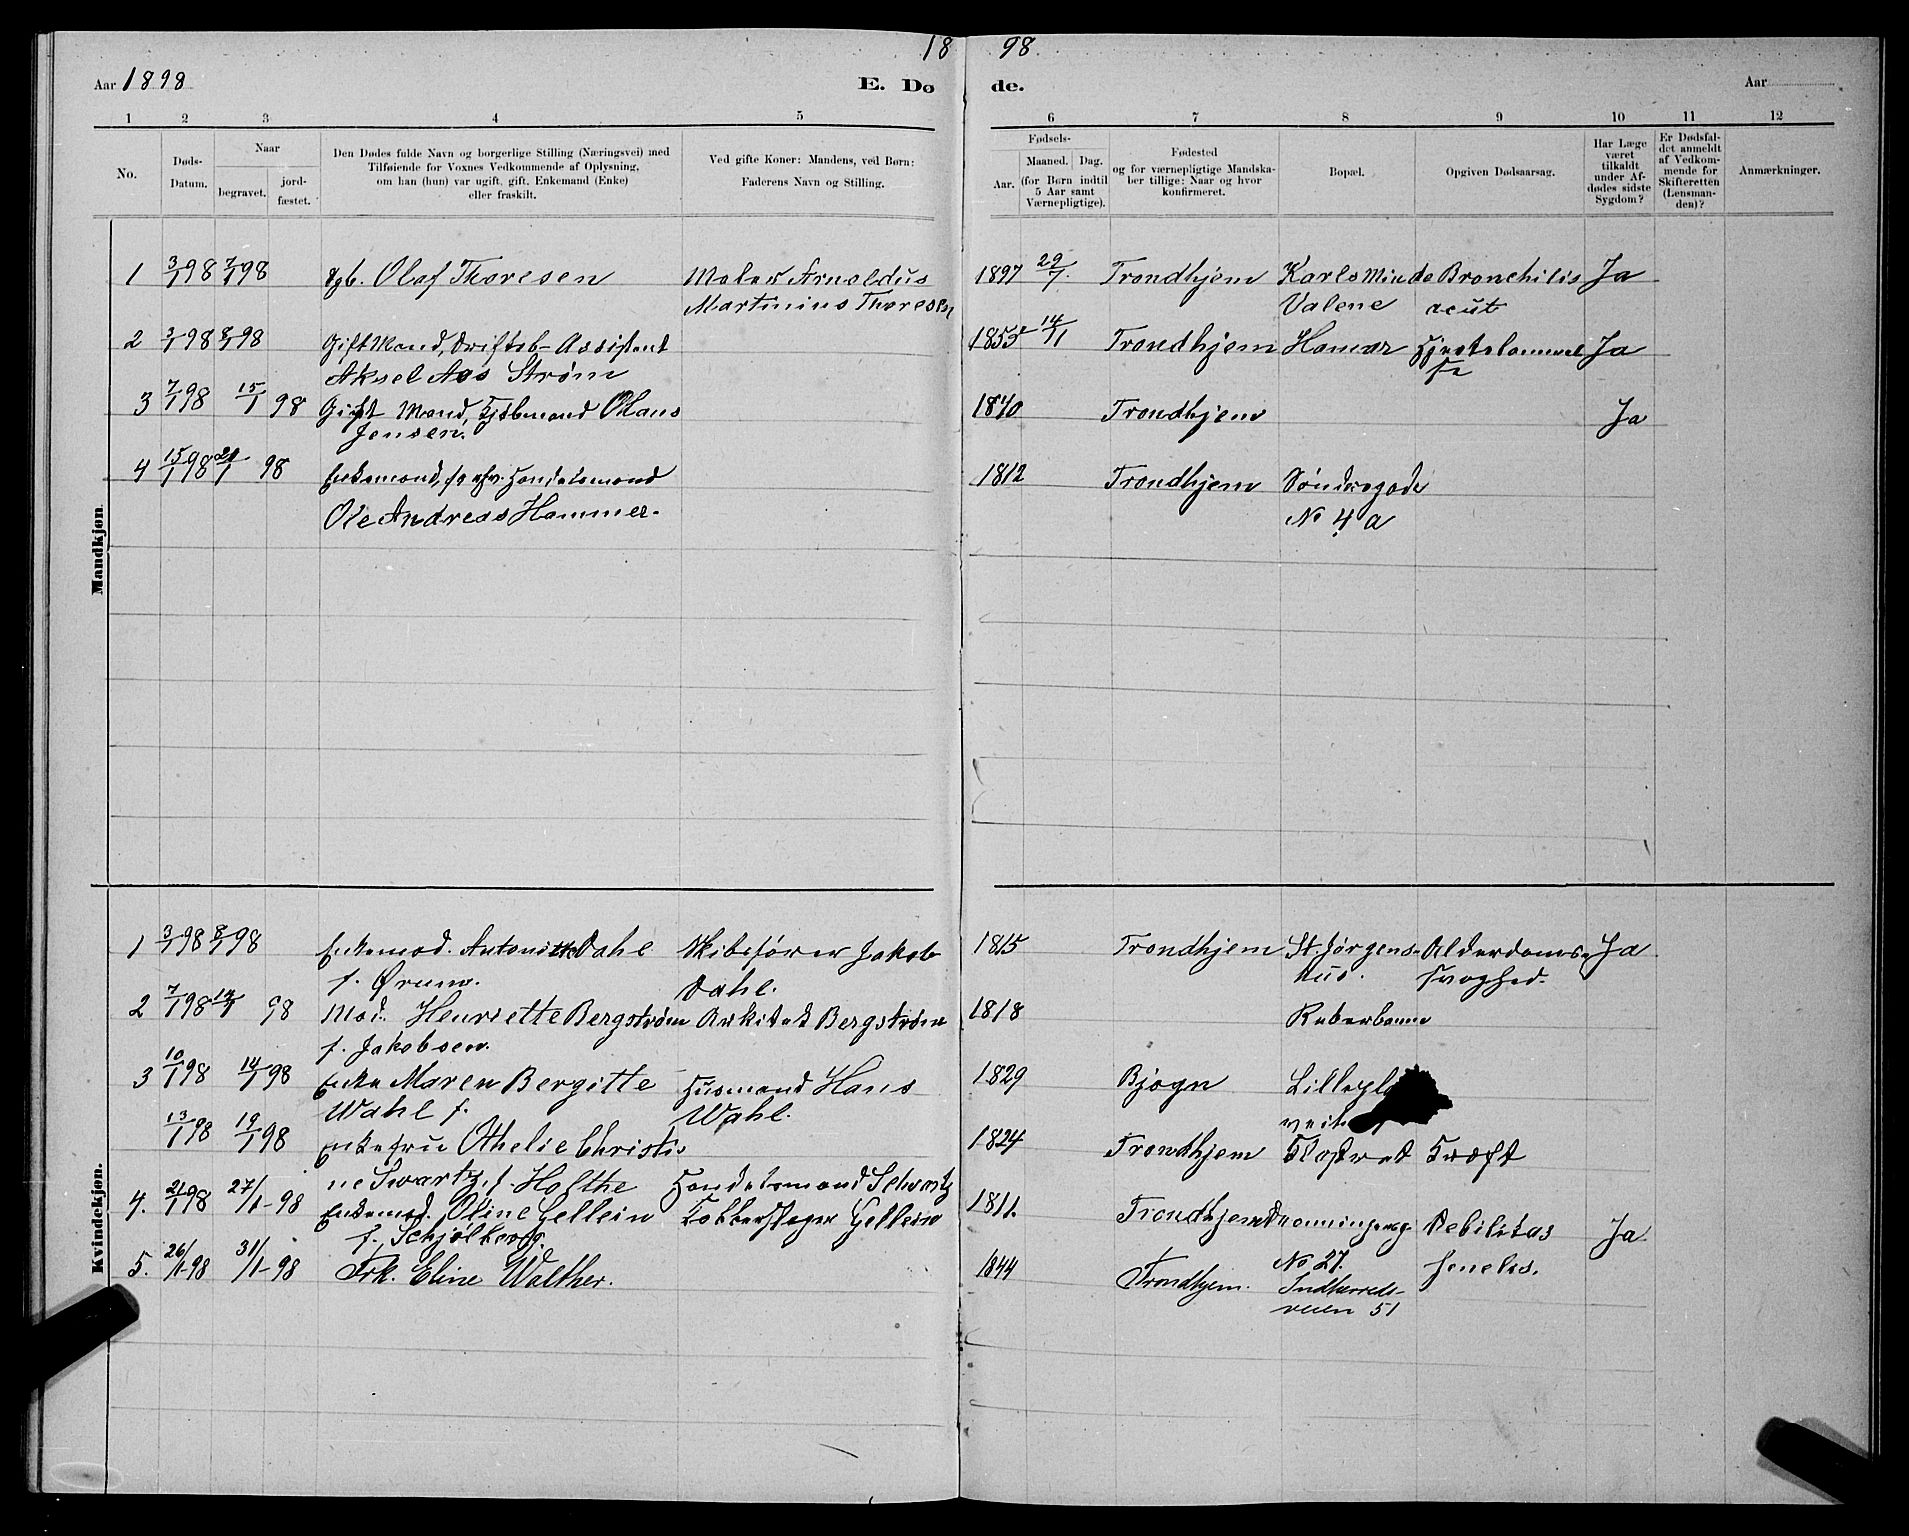 18 98
Aar 1898 E. Dø de. Aar
1 2 3 4 5 6 7 8 9 10 11 12
No.
Døds-
Datum.
Naar
begravet.
jord-
fæstet.
Den Dødes fulde Navn og borgerlige Stilling (Næringsvei) med
Tilføiende for Voxnes Vedkommende af Oplysning,
om han (hun) var ugift, gift, Enkemand (Enke)
eller fraskilt.
Ved gifte Koner: Mandens, ved Børn:
Faderens Navn og Stilling.
Fødsels-
Aar.
Maaned. Dag.
(for Børn indtil
5 Aar samt
Værnepligtige).
Fødested
og for værnepligtige Mandska-
ber tillige: Naar og hvor
konfirmeret.
Bopæl.
Opgiven Dødsaarsag.
Har Læge
været
tilkaldt
under Af-
dødes sidste
Sygdom?
Er Dødsfal-
det anmeldt
af Vedkom-
mende for
Skifteretten
(Lensman-
den)?
Anmærkninger.
Mandkjøn.
1 3/1 98 7/1 98 Olaf Thoresen Maler Arnoldus 1897 29/7. Trondhjem Karlsminde Bronchitis Ja
Martinius Thoresen Valene acut
2 3/1 98 8/1 98 Gift Mand, Driftsb-Assistent 1855 14/11 Trondhjem Hamar Ja
Aksel Aas Strøm
3 7/1 98 15/1 98 Gift Mand, Kjøbmand Olaus 1840 Trondhjem Ja
Jensen.
4 15/1 98 21/1 98 Enkemand, Handelsmand 1812 Trondhjem Søndregade
Ole Andreas Hammer. No 4 a
Kvindekjøn.
1 3/1 98 8/1 98 Enkemad. Antonette Dahl Skibsfører Jakob 1815 Trondhjem St. Jørgens- Alderdoms- Ja
f. Ørum. Dahl. Hus. svaghed.
2 7/1 98 14/1 98 Mad. Henriette Bergstrøm Arkitekt Bergstrøm 1818
f. Jakobsen.
3 10/1 98 14/1 98 Enke Maren Bergitte Husmand Hans 1829 Bjøgn
Wahl f. Wahl. veit
13/1 98 19/1 98 Enkefru Othelie Christi- 1824 Trondhjem Klostret Kræft
ne Swartz, f. Holthe Handelsmand Schwartz
4. 21/1 98 27/1-98 Enkemad. Oline Gellein Kobberslager Gellein 1811. Trondhjem Debilitas Ja
f. Schjølberg. No 27. senelis.
5. 26/1-98 31/1-98 Frk. Eline Walther. 1844 Trondhjem. Indherreds-
veien 51